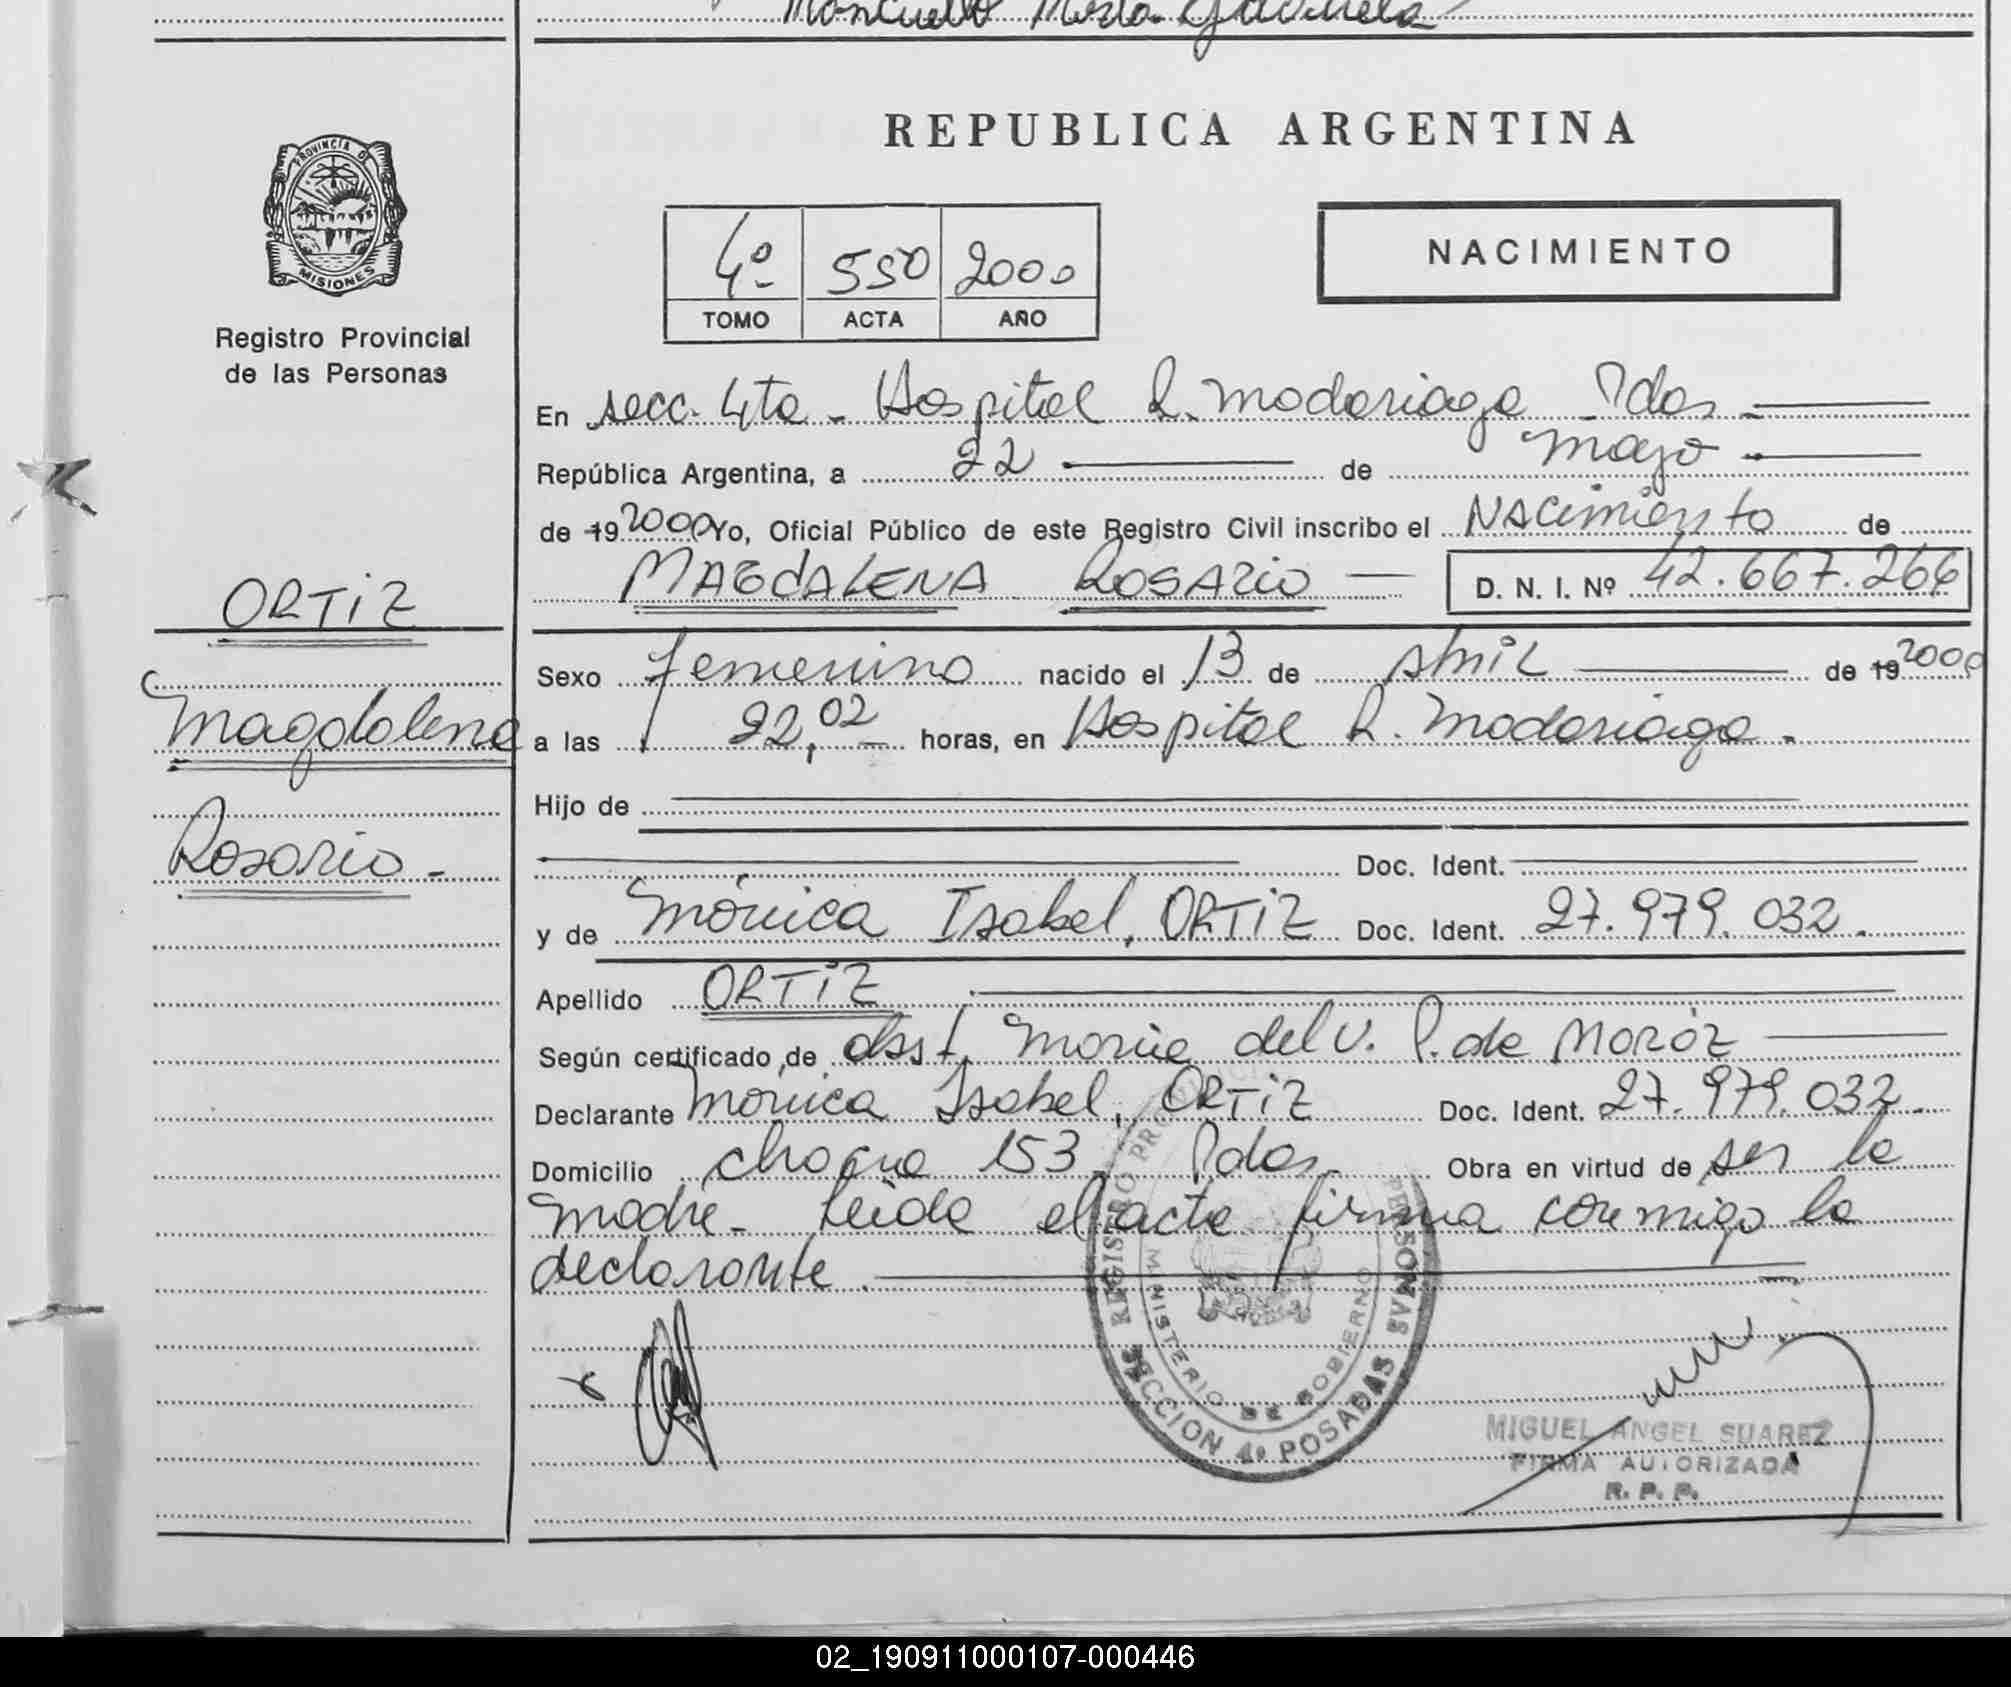 Registro Provincial
de las Personas
PROVINCIA DE
MISIONES
ORTIZ
Magdalena
Rosario -
REPUBLICA ARGENTINA
4º 550 2000
TOMO ACTA AÑO
NACIMIENTO
En secc. 4ta - Hospital R. Madariaga - Pdas
República Argentina, a 22 de mayo
de 19 2000 Yo, Oficial Público de este Registro Civil inscribo el Nacimiento de
MAGDALENA ROSARIO D. N. I. Nº 42.667.266
Sexo femenino nacido el 13 de Abril de 19 2000
a las 22,02 horas, en Hospital R. Madariaga.
Hijo de
Doc. Ident.
y de Mónica Isabel, ORTIZ Doc. Ident. 27.979.032.
Apellido ORTIZ
Según certificado de obst. María del V. P. de MORÓZ
Declarante Mónica Isabel, ORTIZ Doc. Ident. 27.979.032.
Domicilio chacra 153, Pdas. Obra en virtud de ser la
madre - Leída el acta firma conmigo la
declarante.
REGISTRO PROVINCIAL PERSONAS
MINISTERIO DE GOBIERNO
SECCION 4º POSADAS
MIGUEL ANGEL SUAREZ
FIRMA AUTORIZADA
R. P. P.
02_190911000107-000446